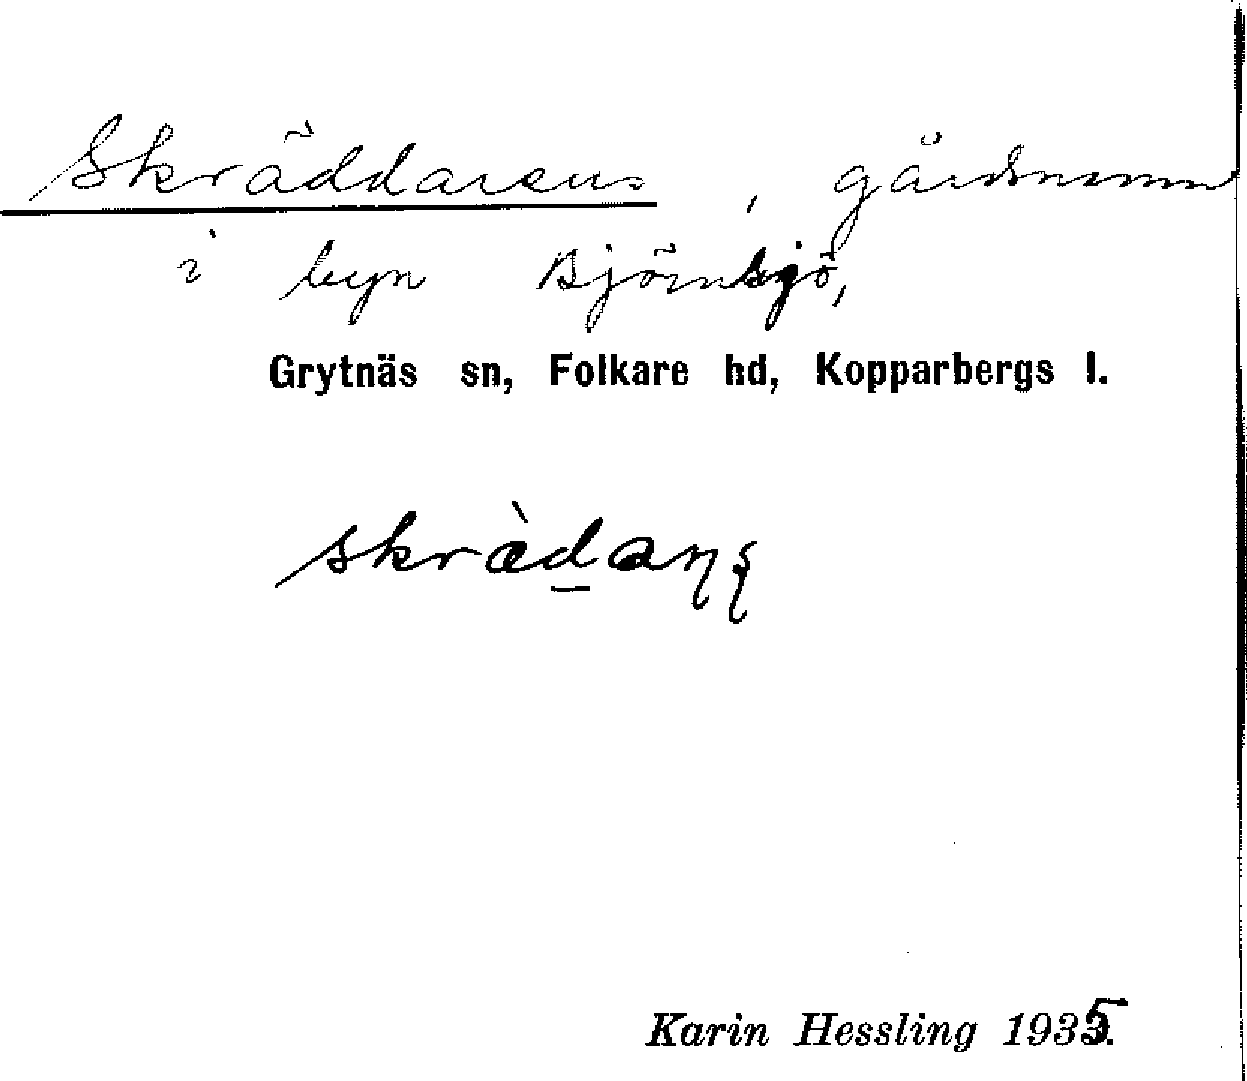 Skräddarens, gårdsnamn
i byn Björnsjö,
Grytnäs sn, Folkare hd, Kopparbergs l.
Karin Hessling 1935.